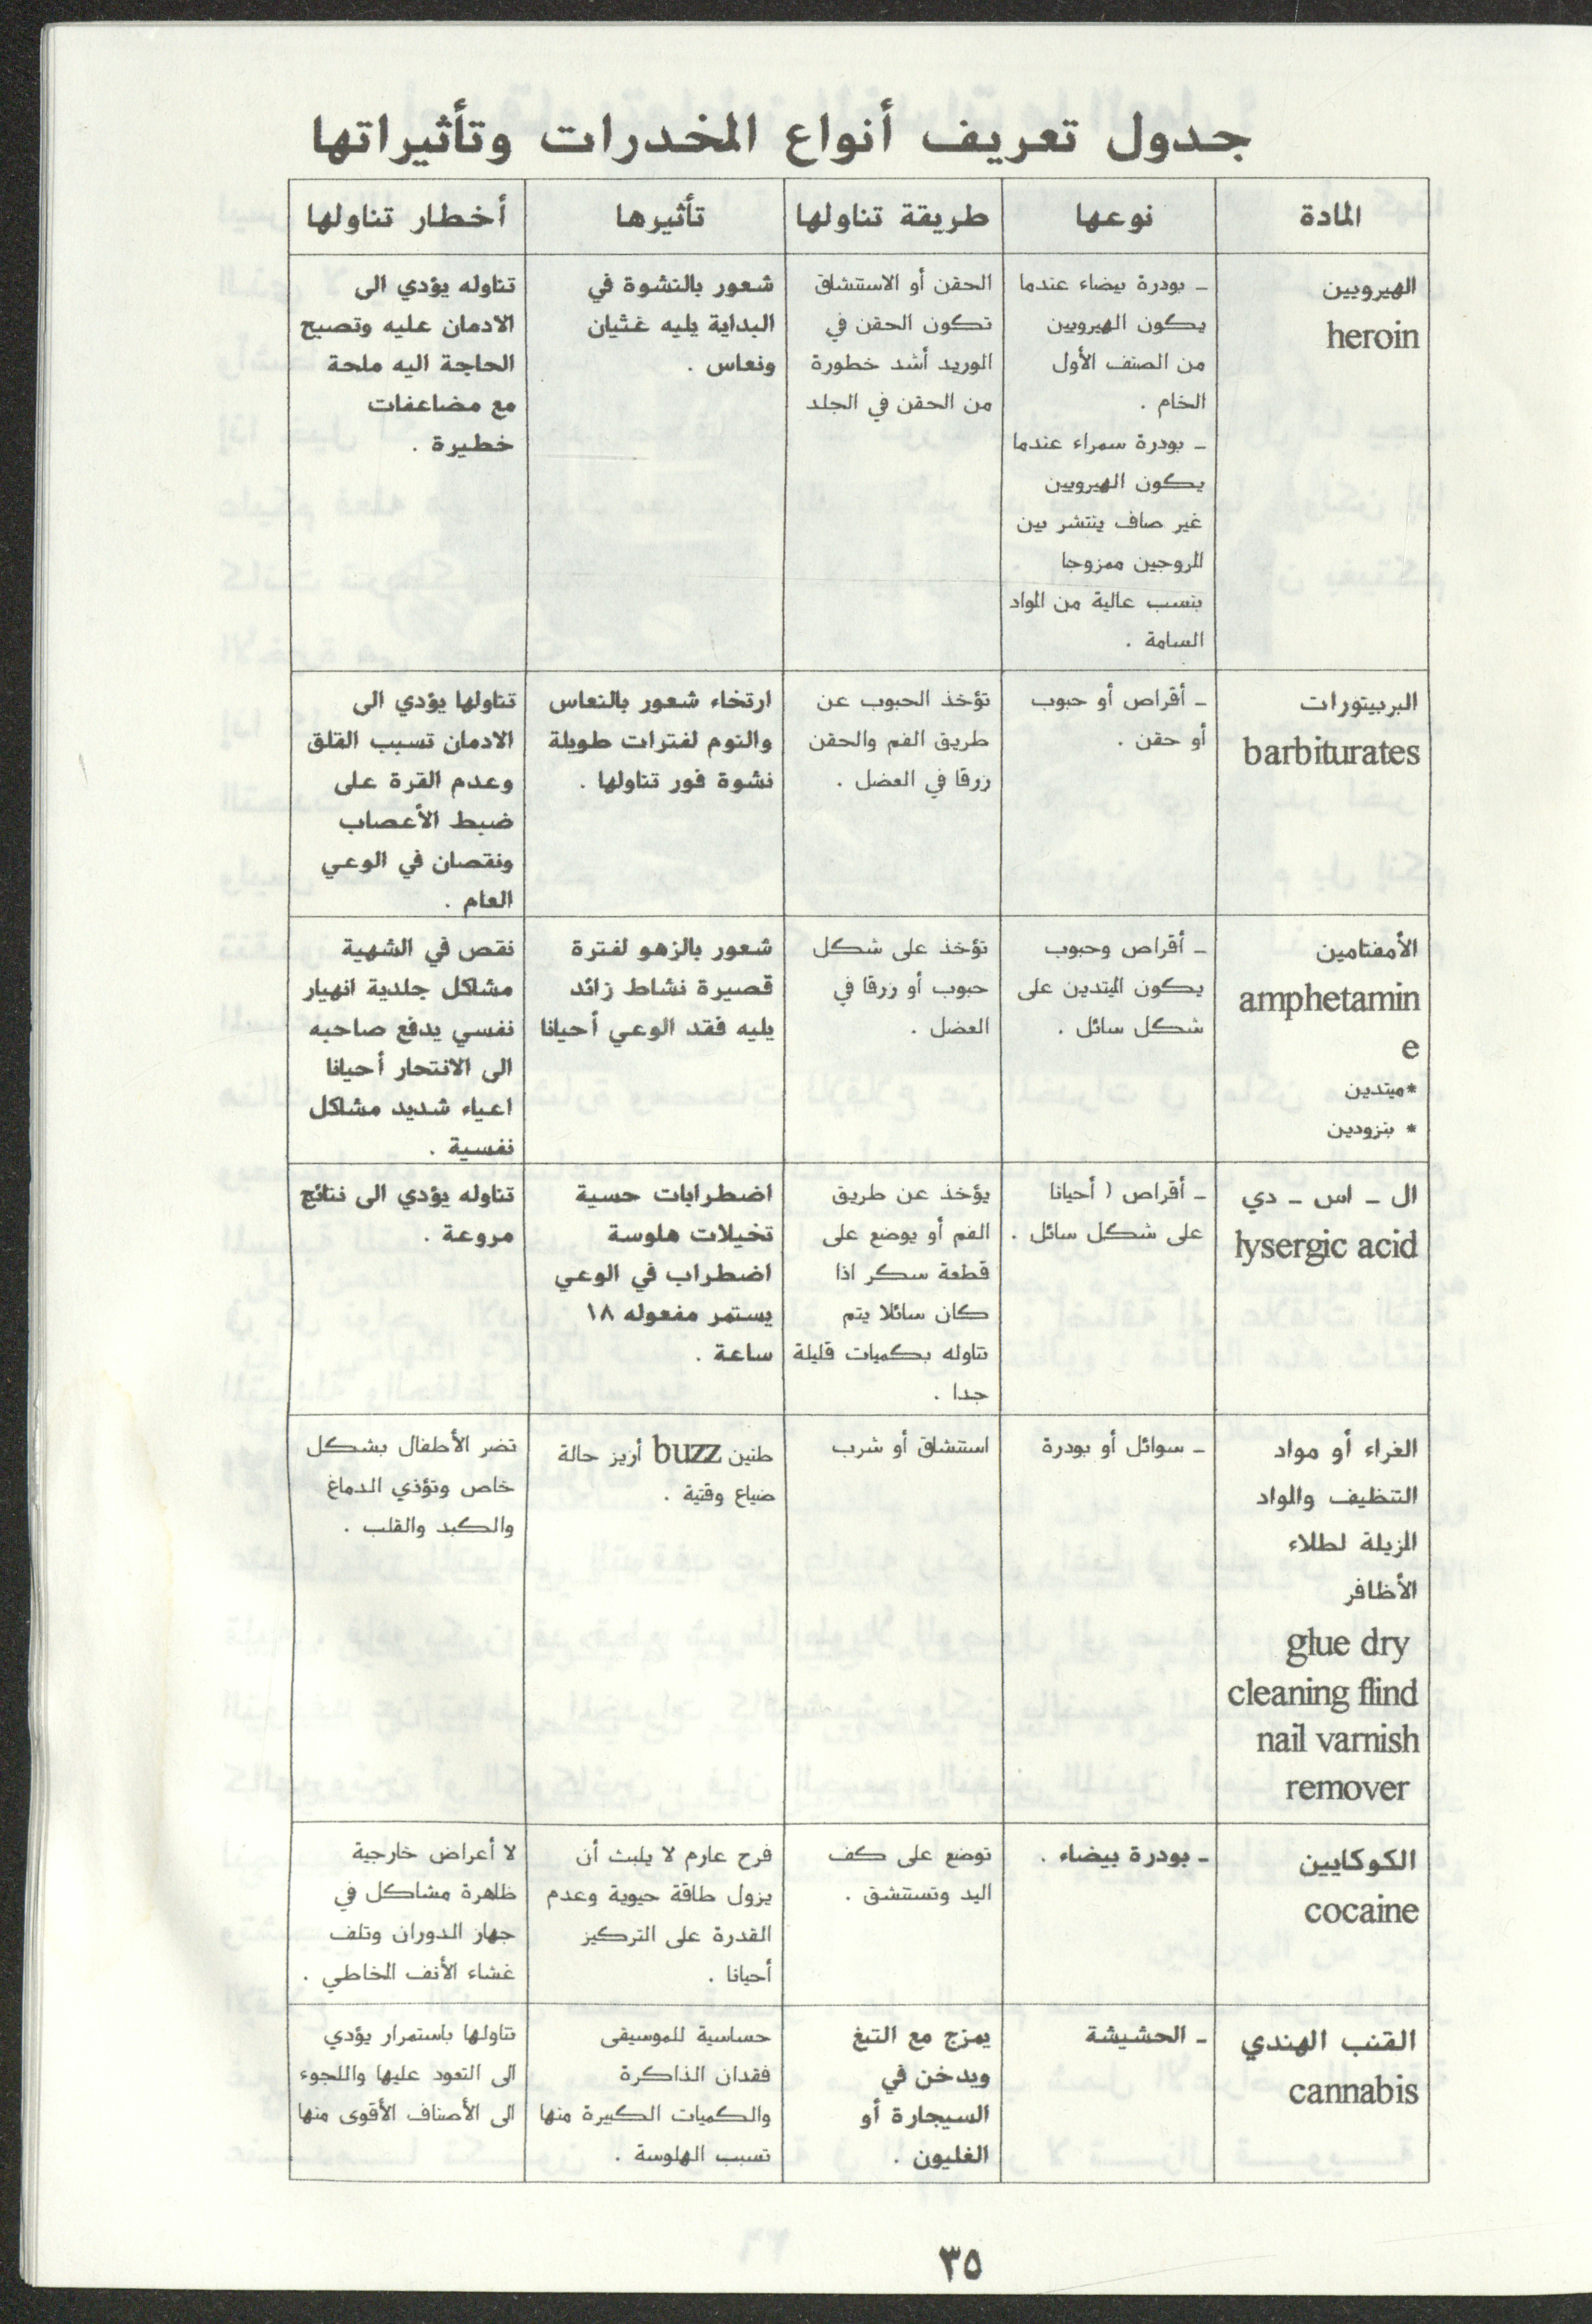 جدول تعريف أنواع المخدرات وتأثيراتها
المادة
نوعها
طريقة تناولها
تأثيرها
أخطار تناولها
الهيرويين
heroin
ـ بودرة بيضاء عندما
يكون الهيرويين
من الصنف الأول
الخام .
ـ بودرة سمراء عندما
يكون الهيرويين
غير صاف ينتشر بين
المروجين ممزوجا
بنسب عالية من المواد
السامة .
الحقن أو الاستنشاق
تكون الحقن في
الوريد أشد خطورة
من الحقن في الجلد
شعور بالنشوة في
البداية يليه غثيان
ونعاس .
تناوله يؤدي الى
الادمان عليه وتصبح
الحاجة اليه ملحة
مع مضاعفات
خطيرة .
البربيتورات
barbiturates
ـ أقراص أو حبوب
أو حقن .
تؤخذ الحبوب عن
طريق الفم والحقن
زرقا في العضل .
ارتخاء شعور بالنعاس
والنوم لفترات طويلة
نشوة فور تناولها .
تناولها يؤدي الى
الادمان تسبب القلق
وعدم القرة على
ضبط الأعصاب
ونقصان في الوعي
العام .
الأمفتامين
amphetamin
e
*ميتدين
* بنزودين
ـ أقراص وحبوب
يكون الميتدين على
شكل سائل .
تؤخذ على شكل
حبوب أو زرقا في
العضل .
شعور بالزهو لفترة
قصيرة نشاط زائد
يليه فقد الوعي أحيانا
نقص في الشهية
مشاكل جلدية انهيار
نفسي يدفع صاحبه
الى الانتحار أحيانا
اعياء شديد مشاكل
نفسية .
ال ـ اس ـ دي
lysergic acid
ـ أقراص ( أحيانا
على شكل سائل .
يؤخذ عن طريق
الفم أو يوضع على
قطعة سكر اذا
كان سائلا يتم
تناوله بكميات قليلة
جدا .
اضطرابات حسية
تخيلات هلوسة
اضطراب في الوعي
يستمر مفعوله ١٨
ساعة .
تناوله يؤدي الى نتائج
مروعة .
الغراء أو مواد
التنظيف والمواد
المزيلة لطلاء
الأظافر
glue dry
cleaning flind
nail varnish
remover
ـ سوائل أو بودرة
استنشاق أو شرب
طنين buzz أزيز حالة
ضياع وقتية .
تضر الأطفال بشكل
خاص وتؤذي الدماغ
والكبد والقلب .
الكوكايين
cocaine
ـ بودرة بيضاء .
توضع على كف
اليد وتستنشق .
فرح عارم لا يلبث أن
يزول طاقة حيوية وعدم
القدرة على التركيز
أحيانا .
لا أعراض خارجية
ظاهرة مشاكل في
جهاز الدوران وتلف
غشاء الأنف المخاطي .
القنب الهندي
cannabis
ـ الحشيشة
يمزج مع التبغ
ويدخن في
السيجارة أو
الغليون .
حساسية للموسيقى
فقدان الذاكرة
والكميات الكبيرة منها
تسبب الهلوسة .
تناولها باستمرار يؤدي
الى التعود عليها واللجوء
الى الأصناف الأقوى منها
٣٥